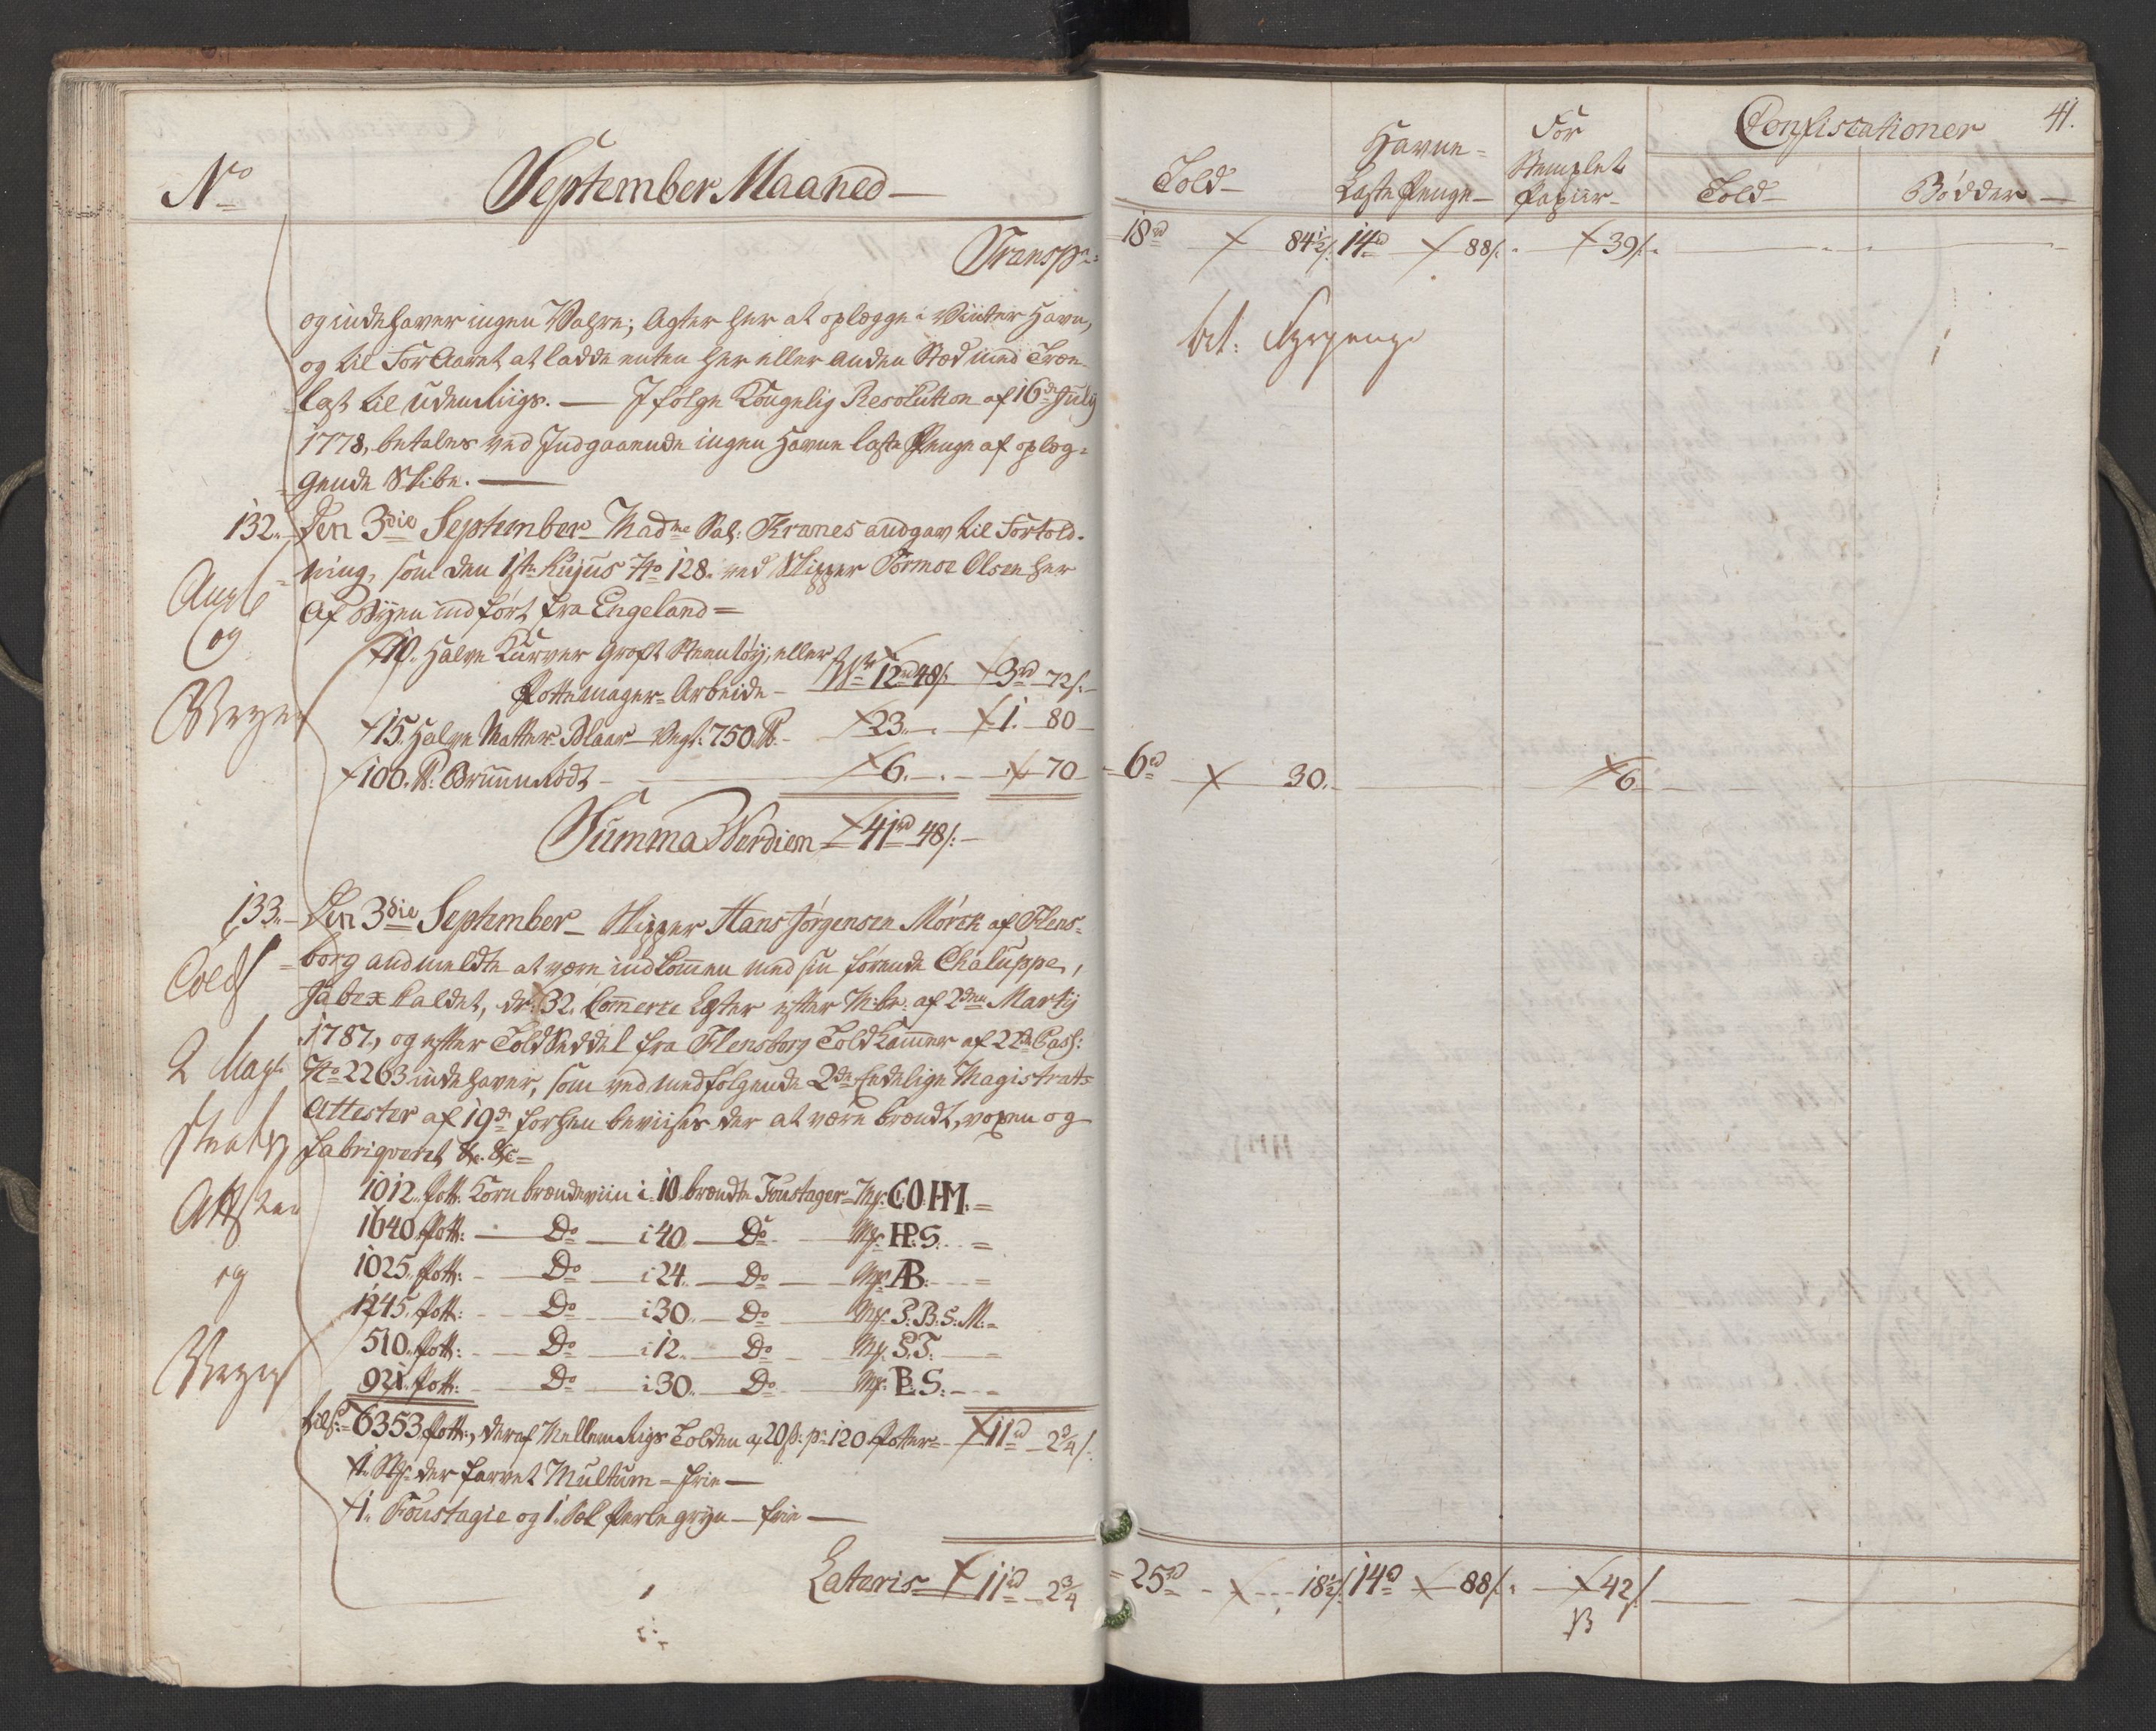 No
September Maaned
Transpt:
og indehaver ingen Vahre; Agter her at oplægge i Vinter Havn,
og til For Aaret at ladde enten her eller anden Stæd med Træe-
last til udenriigs. — Ifølge Kongelig Resolution af 16de July
1778, betales ved Indgaaende ingen Havne laste Penge af oplæg-
gende Skibe. —
132. Den 3die September Madme Sal: Kranes andgav til Fortold-
ning, som den 1ste hujus No 128. ved Skipper Tormoe Olsen her
Af Byen indført fra Engeland =
Angl
og
Veyer
10. Halve Kurver Groft Steentøy, eller
Pottemager-Arbeide - Vr 12rd 48s. 3rd 72s.
15. Halve Matter Blaar Vegt: 750 ℔. 23. 1. 80
100. ℔: Bruunrødt - 6. 70
Summa Verdien 41rd 48s.
133. Den 3die September Skipper Hans Jørgensen Mørck af Flens-
borg andmeldte at være indkommen med sin førende Chaluppe,
Jabex kaldet, dr: 32. Commerce Lester efter M:br: af 2den Martij
1787, og efter ToldSeddel fra Flensborg Told Kammer af 22de Pass:
No 2263 indehaver, som ved medfølgende 2de Eedelige Magistrats
Attester af 19de forhen beviises der at være brændt, voxen og
fabriqveret &c. &c =
Tolds
2 Mag
strats
Attster
og
Veyer
1012. Pott: Korn brændeviin i 10. brændte Foustager Mk: C:O:HM. =
1640. Pott: Do i 40. Do Mk: HP:S: =
1025. Pott: Do i 24. Do Mk: AB: =
1245. Pott: Do i 30. Do Mk: P.B.S.M: =
510. Pott: Do i 12. Do Mk: P.T: =
921. Pott: Do i 30. Do Mk: B:S: =
tils: 6353 Pott:, deraf Mellem Riigs Tolden a 20s. pr 120 Potter 11rd 2¾s.
1. Stk: der farvet Multum - frie —
1. Foustagie og 1. Sæk Perlegryn - frie —
Lateris 11rd 2¾
41.
Told
Havne-
Laste Penge
For
Stemplet
Papiir
Confiscationer
Told
Bødder
18rd 84½s. 14rd 88s. 39s.
bet: Fyrpenge
6rd 30. 6
25rd 18½s. 14rd 88s. 42s.